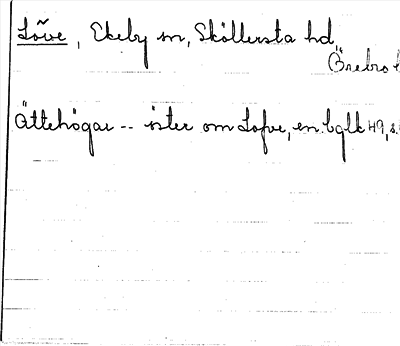 Löve, Ekeby sn, Sköllersta hd,
Örebro l
Ättehögar -- öster om Lofve, en. bglb 49, s.